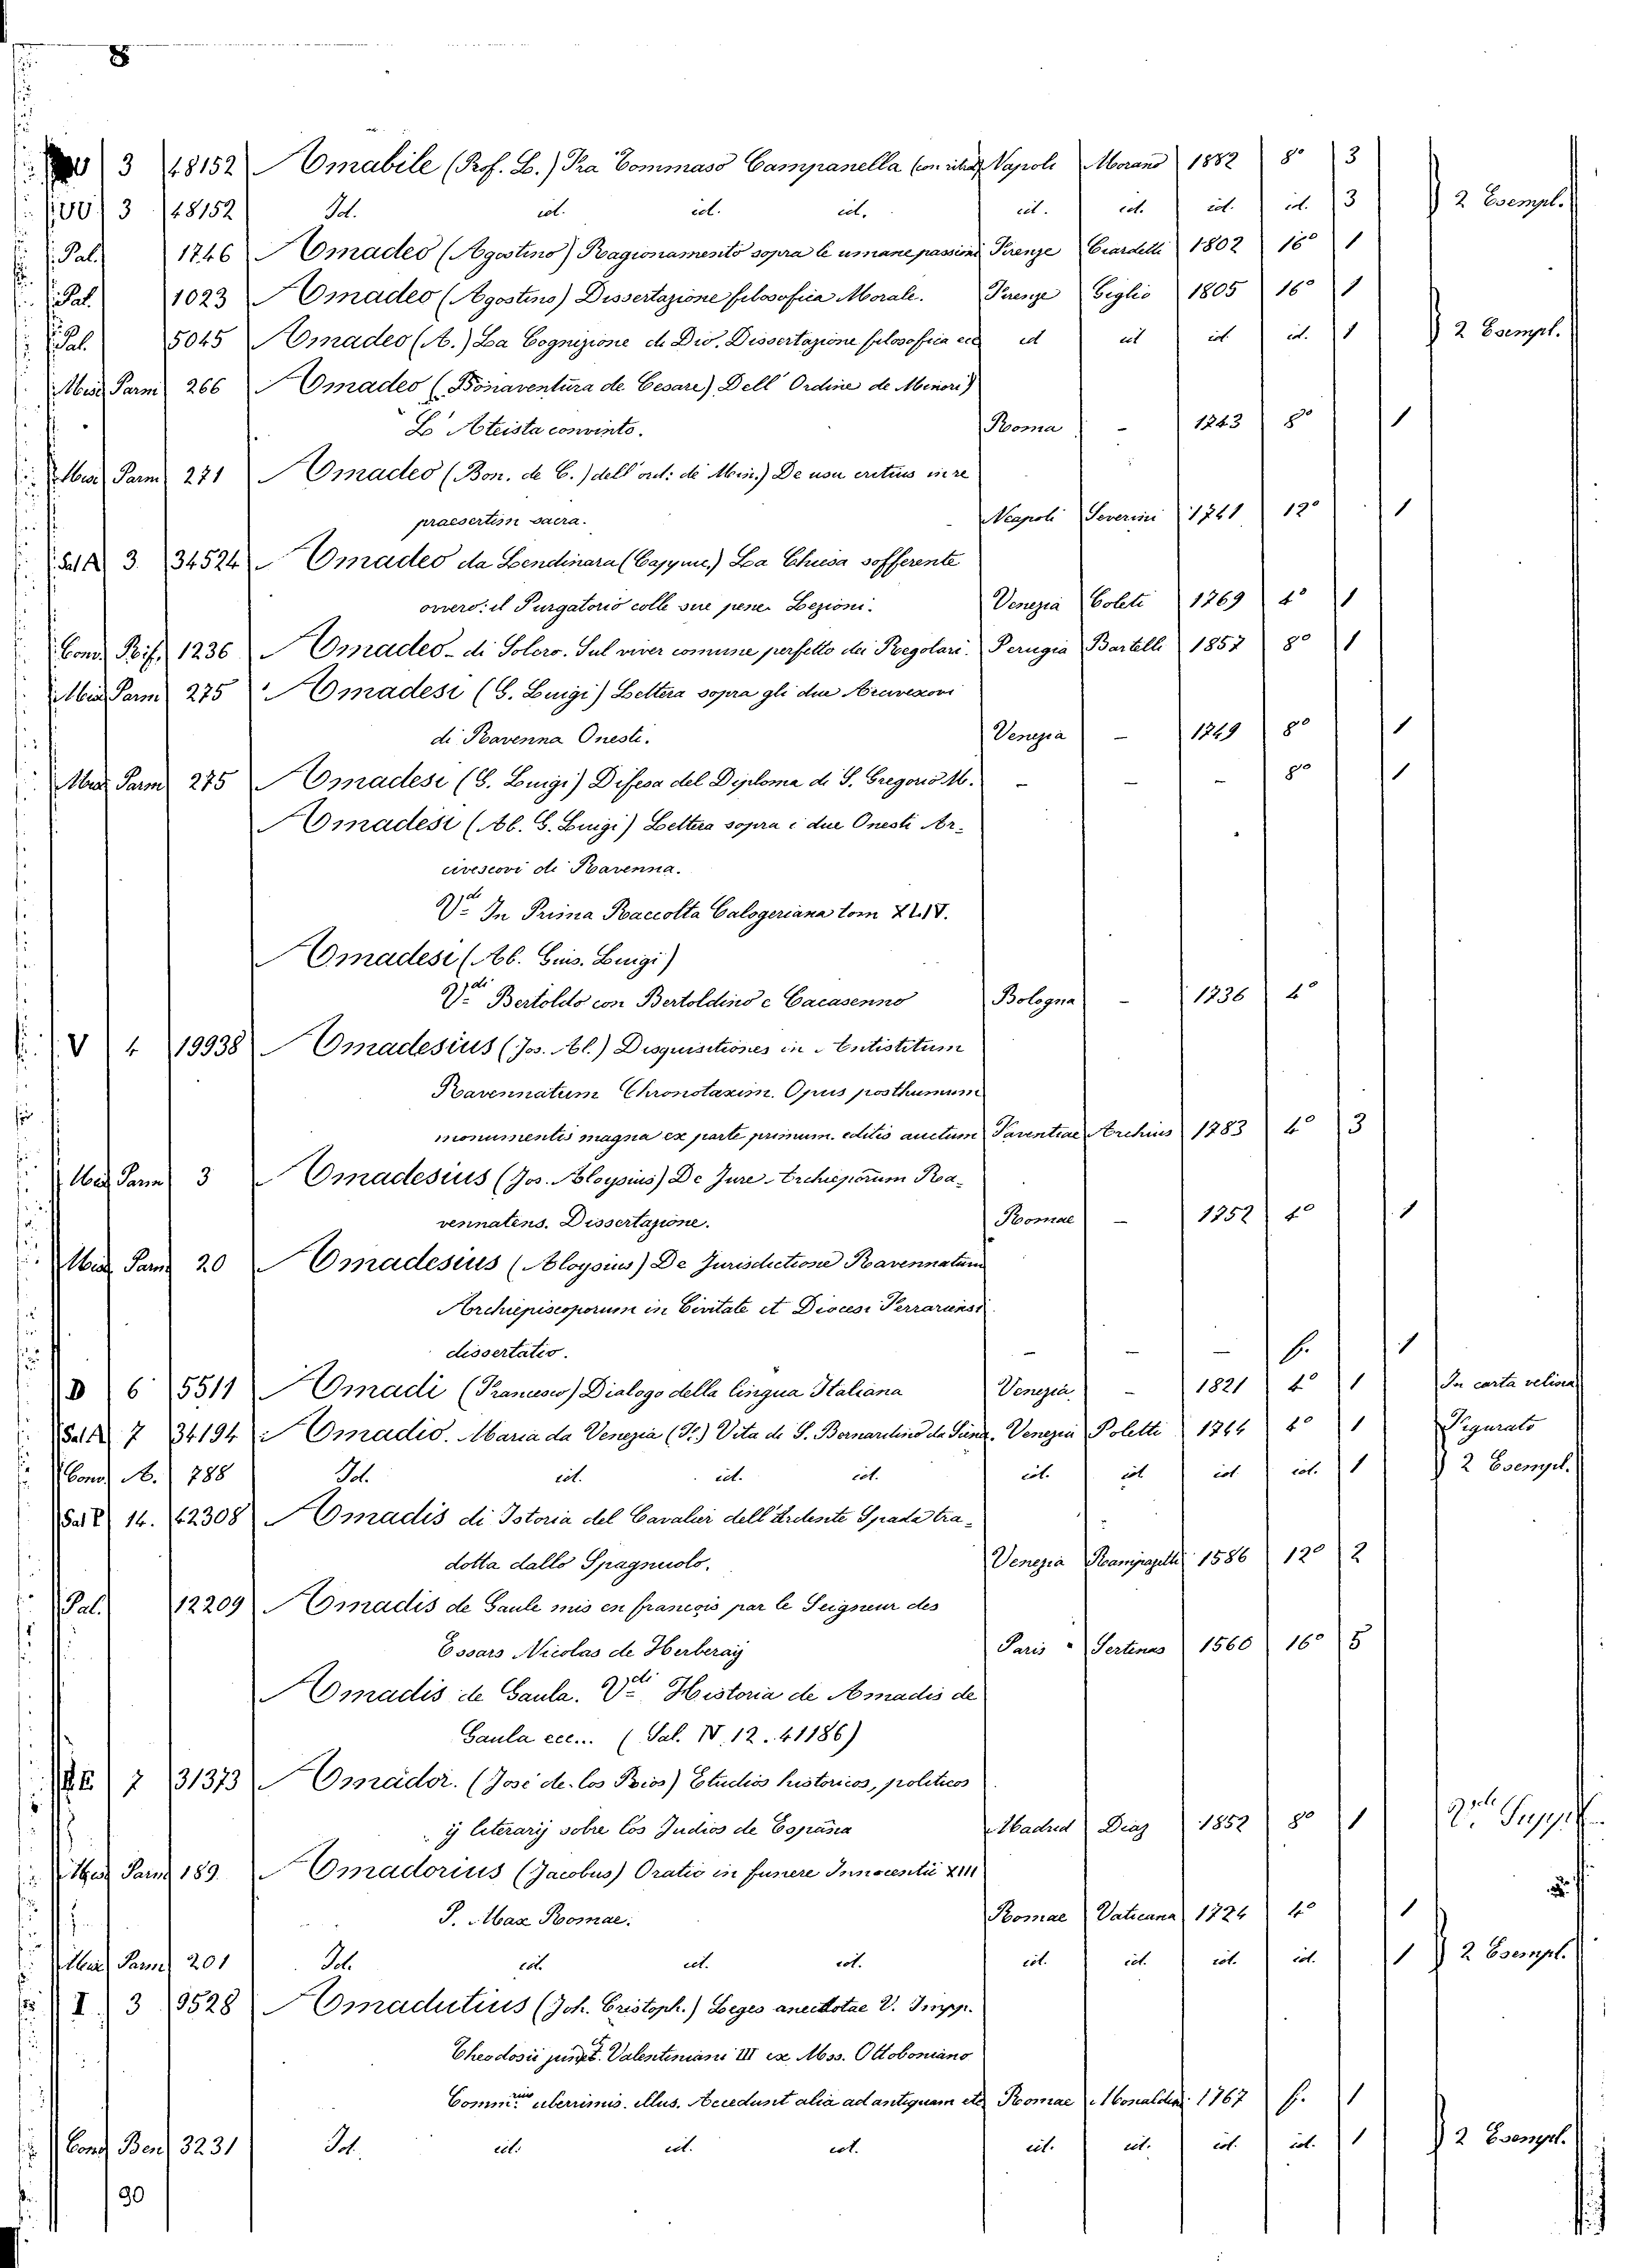 8
3 48152 Amabile (Prof. L.) Fra Tommaso Campanella Napoli Morano 1882 8º 3
3 48152 Id. id. id. id. id. id. id. id. 3 2 Esempl.
Pal. 1746 Amadeo (Agostino) Ragionamento sopra le umane passioni Firenze Ciardelli 1802 16º 1
Pal. 1023 Amadeo (Agostino) Dissertazione filosofica Morale. Firenze Giglio 1805 16º 1
Pal. 5045 Amadeo (A.) La Cognizione di Dio. Dissertazione filosofica ecc id id id. id. 1 2 Esempl.
Misc Parm 266 Amadeo (Bonaventura de Cesare) Dell' Ordine de Minori)
L' Ateista convinto. Roma - 1743 8º 1
Misc Parm 271 Amadeo (Bon. de C.) dell' ord: de Min.) De usu critius in re
praesertim sacra. Neapoli Severini 1741 12º 1
Sal A 3 34524 Amadeo da Lendinara La Chiesa sofferente
ovvero: il Purgatorio colle sue pene. Lezioni. Venezia Coleti 1769 4º 1
Conv. Rif. 1236 Amadeo - di Solero. Sul viver comune perfetto dei Regolari. Perugia Bartelli 1857 8º 1
Misc Parm 275 Amadesi (G. Luigi) Lettera sopra gli due Arcivescovi
di Ravenna Onesti. Venezia - 1749 8º 1
Misc Parm 275 Amadesi (G. Luigi) Difesa del Diploma di S. Gregorio M. - - - 8º 1
Amadesi (Ab. G. Luigi) Lettera sopra i due Onesti Ar-
civescovi di Ravenna.
Vdi In Prima Raccolta Calogeriana tom XLIV.
Amadesi (Ab. Gius. Luigi)
Vdi Bertoldo con Bertoldino e Cacasenno Bologna - 1736 4º
V 4 19938 Amadesius (Jos. Al.) Disquisitiones in Antistitum
Ravennatum Chronotaxim. Opus posthumum
monumentis magna ex parte primum editis auctum Faventiae Archius 1783 4º 3
Misc Parm 3 Amadesius (Jos. Aloysius) De Jure Archieporum Ra-
vennatens. Dissertazione. Romae - 1752 4º 1
Misc Parm 20 Amadesius (Aloysius) De Jurisdictione Ravennatum
Archiepiscoporum in Civitate et Diocesi Ferrariensi
dissertatio. - - - f. 1
D 6 5511 Amadi (Francesco) Dialogo della lingua Italiana Venezia. - 1821 4º 1 In carta velina
Sal A 7 34194 Amadio. Maria da Venezia (F.) Vita di S. Bernardino da Siena. Venezia Poletti 1744 4º 1 Figurato
Conv. A. 788 Id. id. id. id. id. id id id. 1 2 Esempl.
14. 42308 Amadis di Istoria del Cavalier dell' Ardente Spada tra-
dotta dallo Spagnuolo. Venezia 1586 12º 2
Pal. 12209 Amadis de Gaule mis en françois par le Seigneur des
Essars Nicolas de Herberay Paris Sertenas 1560 16º 5
Amadis de Gaula. Vdi Historia de Amadis de
Gaula ecc... (Sal. IV. 12. 41186)
7 31373 Amador. (José de los Rios) Estudios historicos, politicos
y literarij sobre los Judios de España Madrid Diaz 1852 8º 1
Misc Parm 189. Amadorius (Jacobus) Oratio in funere Innocentii XIII
P. Max Romae. Romae Vaticana 1724 4º 1
Misc Parm 201 Id. id. id. id. id. id. id. id. 1 2 Esempl.
I 3 9528 Amadutius (Joh. Cristoph.) Leges anecdotae V. Impp.
Theodosii Valentiniani III ex Mss. Ottoboniano
uberrimis. illus. Accedunt alia ad antiquam etc Romae Monaldini 1767 f. 1
Conv Ben 3231 Id. id. id. id. id. id. id. id. 1 2 Esempl.
90